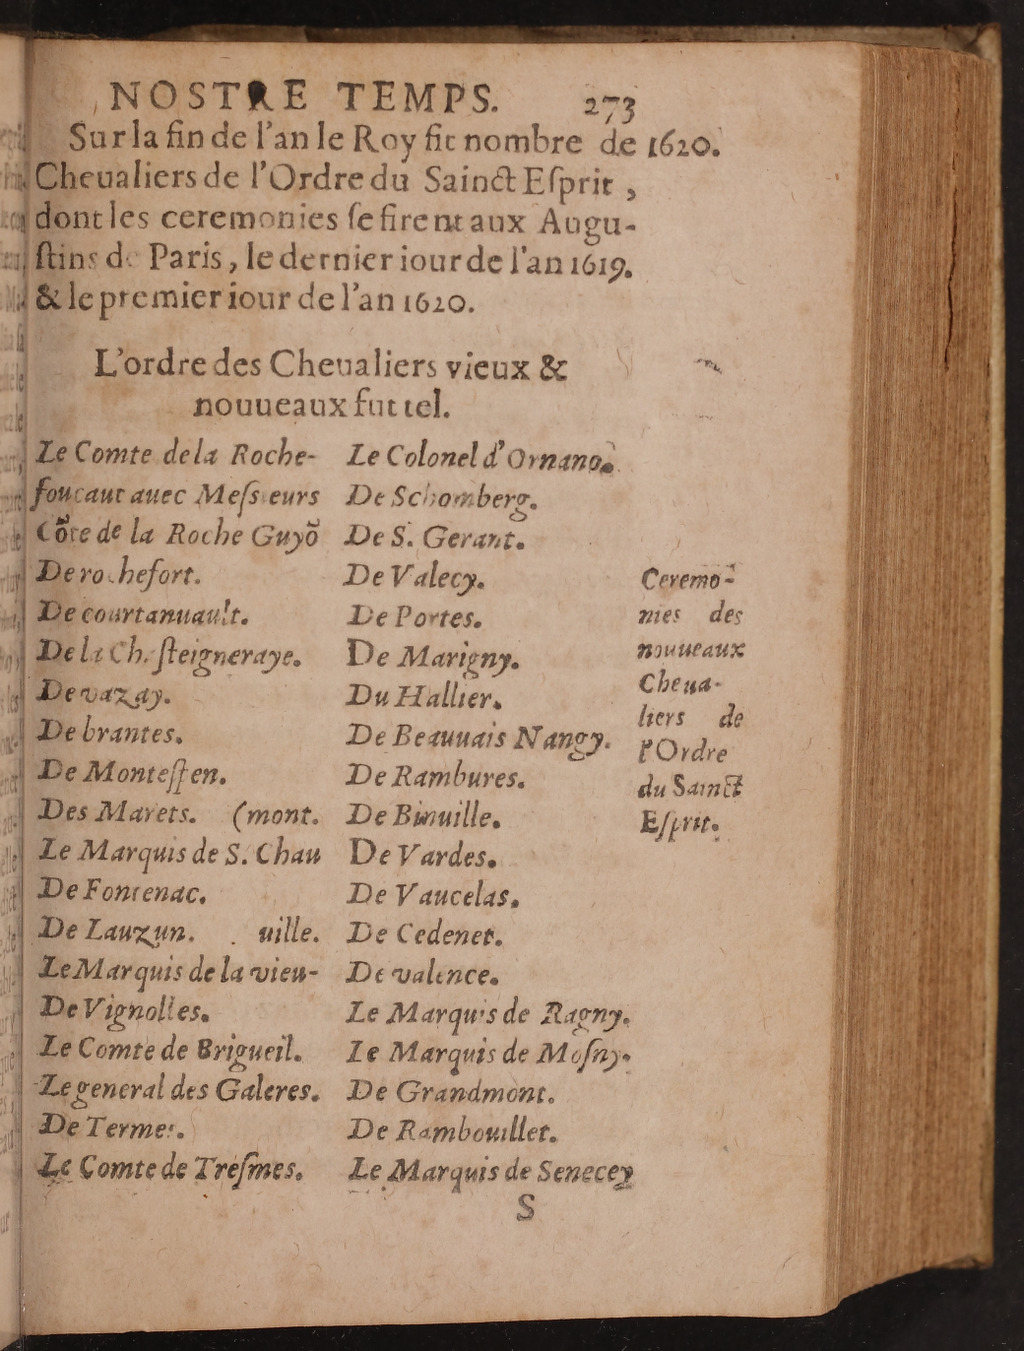 NOSTRE TEMPS. 273
Sur la fin de l'an le Roy fit nombre de 1620.
Cheualiers de l'Ordre du Sainct Eſprit,
dont les ceremonies ſe firent aux Augu-
ſtins de Paris, le dernier iour de l'an 1619,
& le premier iour de l'an 1620.
L'ordre des Cheualiers vieux &
nouueaux fut tel.
Le Comte de la Roche-
foucaut auec Meſsieurs
Cõte de la Roche Guyõ
De rochefort.
De courtanuault.
De la Chaſteigneraye.
De vazay.
De brantes.
De Monteſpen.
Des Marets. (mont.
Le Marquis de S. Chau
De Fontenac.
De Lauzun. uille.
Le Marquis de la vieu-
De Vignolles.
Le Comte de Brigueil.
Le general des Galeres.
De Termes.
Le Comte de Treſmes.
Le Colonel d'Ornano.
De Schomberg.
De S. Gerant.
De Valecy.
De Portes.
De Marigny.
Du Hallier.
De Beauuais Nangy.
De Rambures.
De Binuille.
De Vardes.
De Vaucelas.
De Cedenet.
De valence.
Le Marquis de Ragny.
Le Marquis de Moſny.
De Grandmont.
De Rambouillet.
Le Marquis de Senecey
Ceremo-
nies des
nouueaux
Cheua-
liers de
l'Ordre
du Sainct
Eſprit.
S